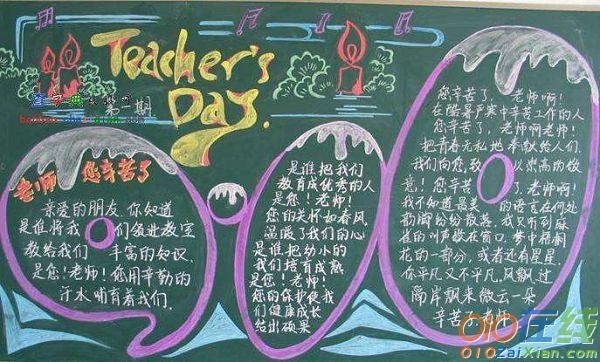 Teacher's
Day.
第 期
老师 您辛苦了
亲爱的朋友.你知道
是谁将我们领进教室
教给我们丰富的知识.
是您!老师!您用辛勤的
汗水哺育着我们.
是谁把我们
教育成优秀的人
是您!老师!
您的关怀如春风
温暖了我们的心
是谁把幼小的
我们培育成熟
是您!老师!
您的保护使我
们健康成长
结出硕果
您辛苦了,老师啊!
在酷暑严寒中辛苦工作的人
您辛苦了,老师啊老师!
把青春无私地奉献给人们.
我们向您,致以崇高的敬
意!您辛苦了,老师啊!
我不知道最美的语言在何处
纷纷散落.我只听到麻
雀的叫声歇在窗口,梦中梧桐
花的一部分,或者还有星星.
你平凡又不平凡.风飘过
隔岸飘来微云一朵
辛苦了老师
010在线
010zaixian.com